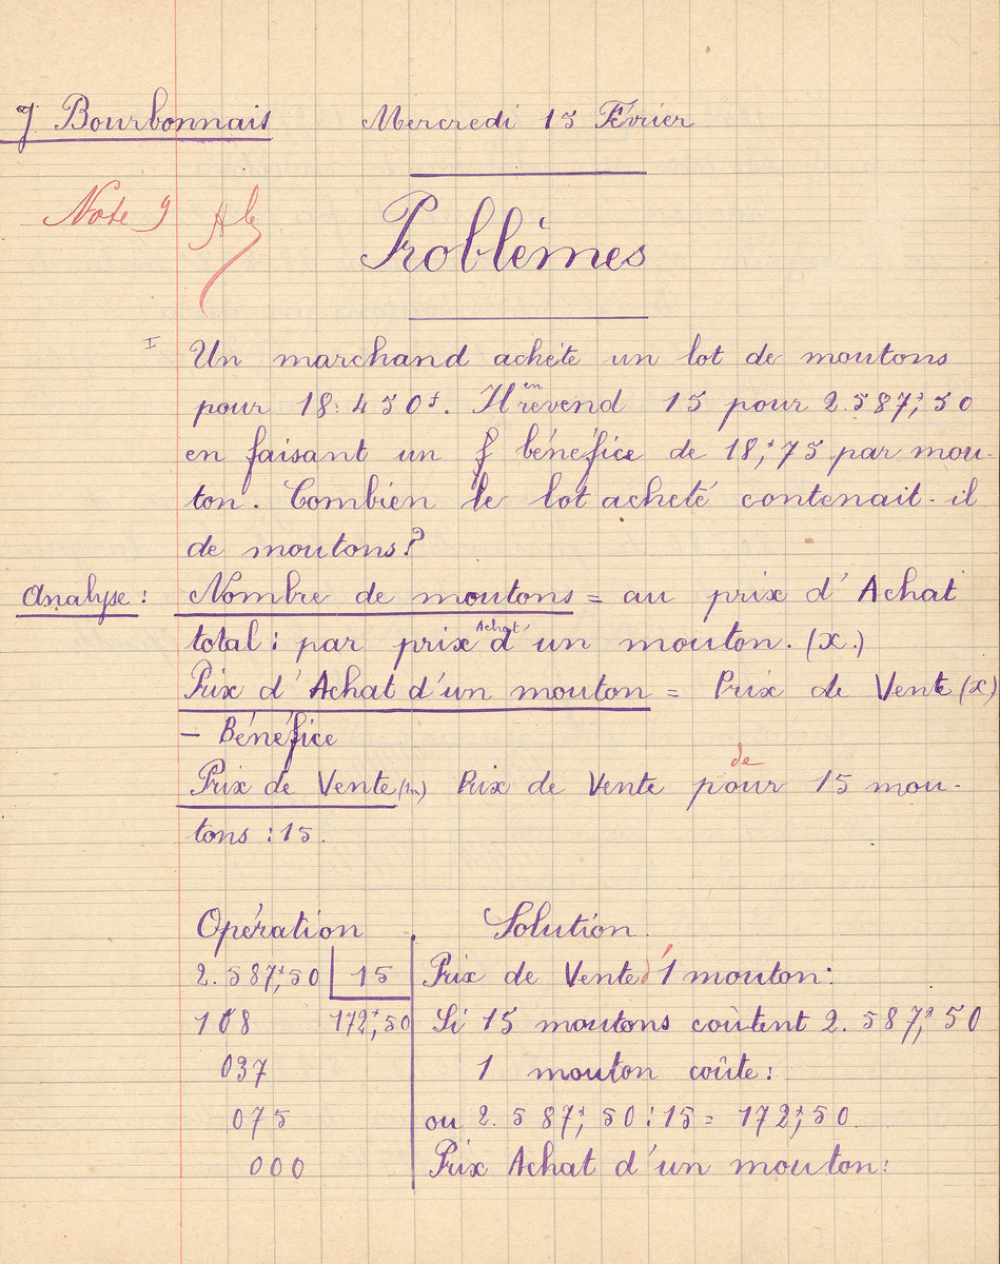 J Bourbonnais Mercredi 15 Février
Note 9
Problèmes
I Un marchand achète un lot de moutons
pour 18.450f. Il en revend 15 pour 2.587f,50
en faisant un bénéfice de 18f,75 par mou-
ton. Combien le lot acheté contenait-il
de moutons?
Analyse: Nombre de moutons = au prix d'Achat
total: par prix Achat d'un mouton. (x.)
Prix d'Achat d'un mouton = Prix de Vente (x)
- Bénéfice
de
Prix de Vente (1m) Prix de Vente pour 15 mou-
tons : 15.
Opération Solution.
2.587f,50 15 Prix de Vente d'1 mouton:
108 172f,50 Si 15 moutons coûtent 2.587f,50
037 1 mouton coûte:
075 ou 2.587f,50 : 15 = 172f,50.
000 Prix Achat d'un mouton: